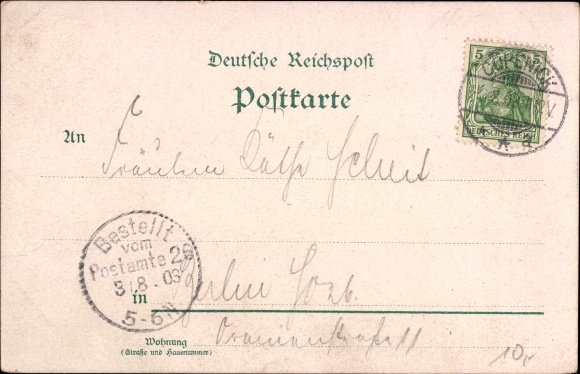 Deutsche Reichspost
Postkarte
5
CÖPENICK
DEUTSCHES REICH
An
Fräulein Käthe Scheit
Bestellt
vom
Postamte 26
3 8 . 03
5-6N
in Berlin
Oranienstraße
Wohnung
(Straße und Hausnummer)
10,-